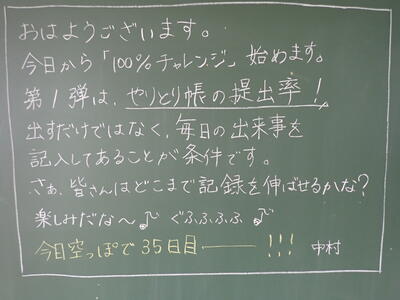 おはようございます。
今日から「100%チャレンジ」始めます。
第1弾は、やりとり帳の提出率!
出すだけではなく、毎日の出来事を
記入してあることが条件です。
さぁ、皆さんはどこまで記録を伸ばせるかな?
楽しみだな～♪ ぐふふふふ ♪
今日空っぽで35日目――!!! 中村